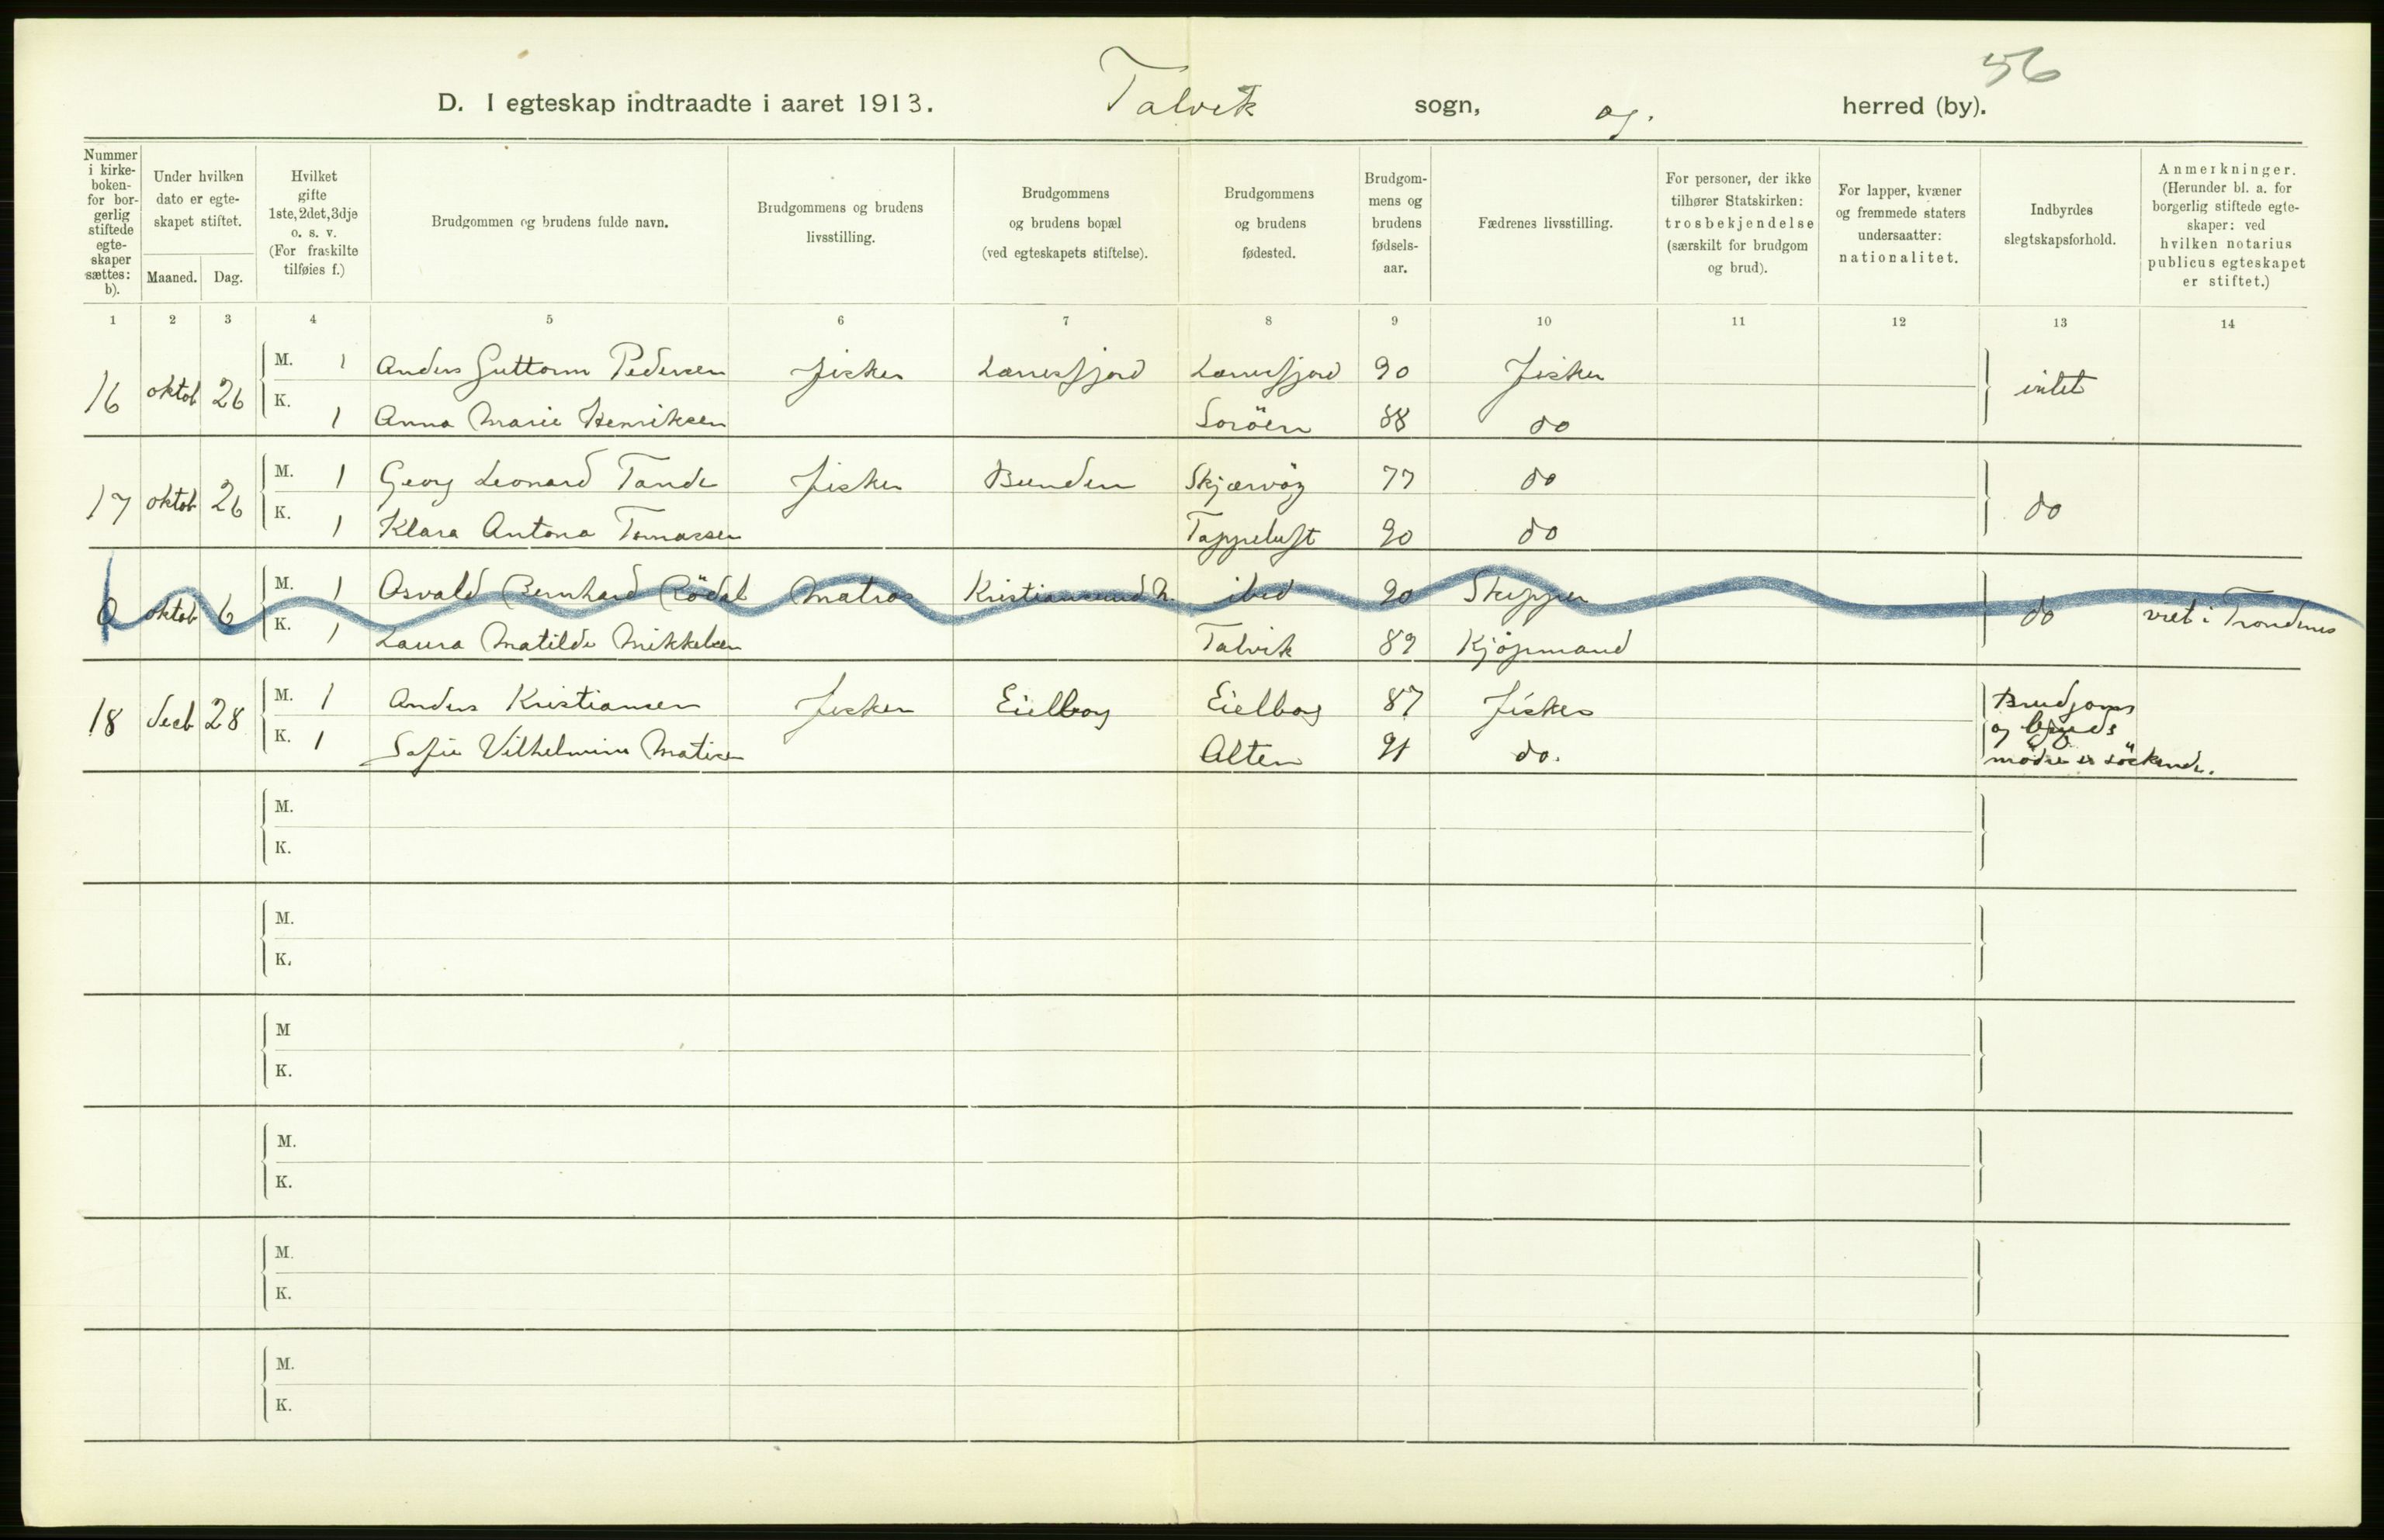 56
D. I egteskap indtraadte i aaret 1913. Talvik sogn, og. herred (by).
Nummer i kirke- boken- for bor- gerlig stiftede egte- skaper sættes: b).
Under hvilken dato er egte- skapet stiftet.
Maaned. Dag.
Hvilket gifte 1ste, 2det, 3dje o. s. v. (For fraskilte tilføies f.)
Brudgommen og brudens fulde navn.
Brudgommens og brudens livsstilling.
Brudgommens og brudens bopæl (ved egteskapets stiftelse).
Brudgommens og brudens fødested.
Brudgom- mens og brudens fødsels- aar.
Fædrenes livsstilling.
For personer, der ikke tilhører Statskirken: trosbekjendelse (særskilt for brudgom og brud).
For lapper, kvæner og fremmede staters undersaatter: nationalitet.
Indbyrdes slegtskapsforhold.
Anmerkninger. (Herunder bl. a. for borgerlig stiftede egte- skaper: ved hvilken notarius publicus egteskapet er stiftet.)
1 2 3 4 5 6 7 8 9 10 11 12 13 14
16 oktob 26 M. 1 Anders Guttorm Pedersen fisker Langfjord Langfjord 90 fisker intet
K. 1 Anna Marie Henriksen Soröen 88 do
17 oktob 26 M. 1 Georg Leonard Tande fisker Bunden Skjærvöy 77 do do
K. 1 Klara Antona Tomassen Tappeluft 90 do
0 oktob 6 M. 1 Osvald Bernhard Rödal Matros Kristiansund N. ibid 90 Skipper do viet i Trondenes
K. 1 Laura Matilde Mikkelsen Talvik 89 Kjöpmand
18 decb 28 M. 1 Anders Kristiansen fisker Eielbog Eielbog 87 fisker Brudgoms
og bruds
K. 1 Sofie Vilhelmine Matisen Alten 91 do. mödre er söskende.
M.
K.
M.
K.
M
K.
M.
K.
M.
K.
M.
K.